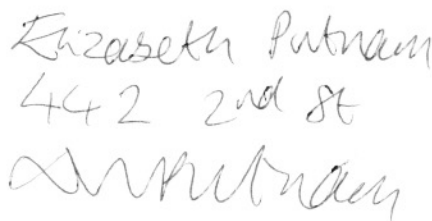 Elizabeth Putnam
442 2nd St
Putnam